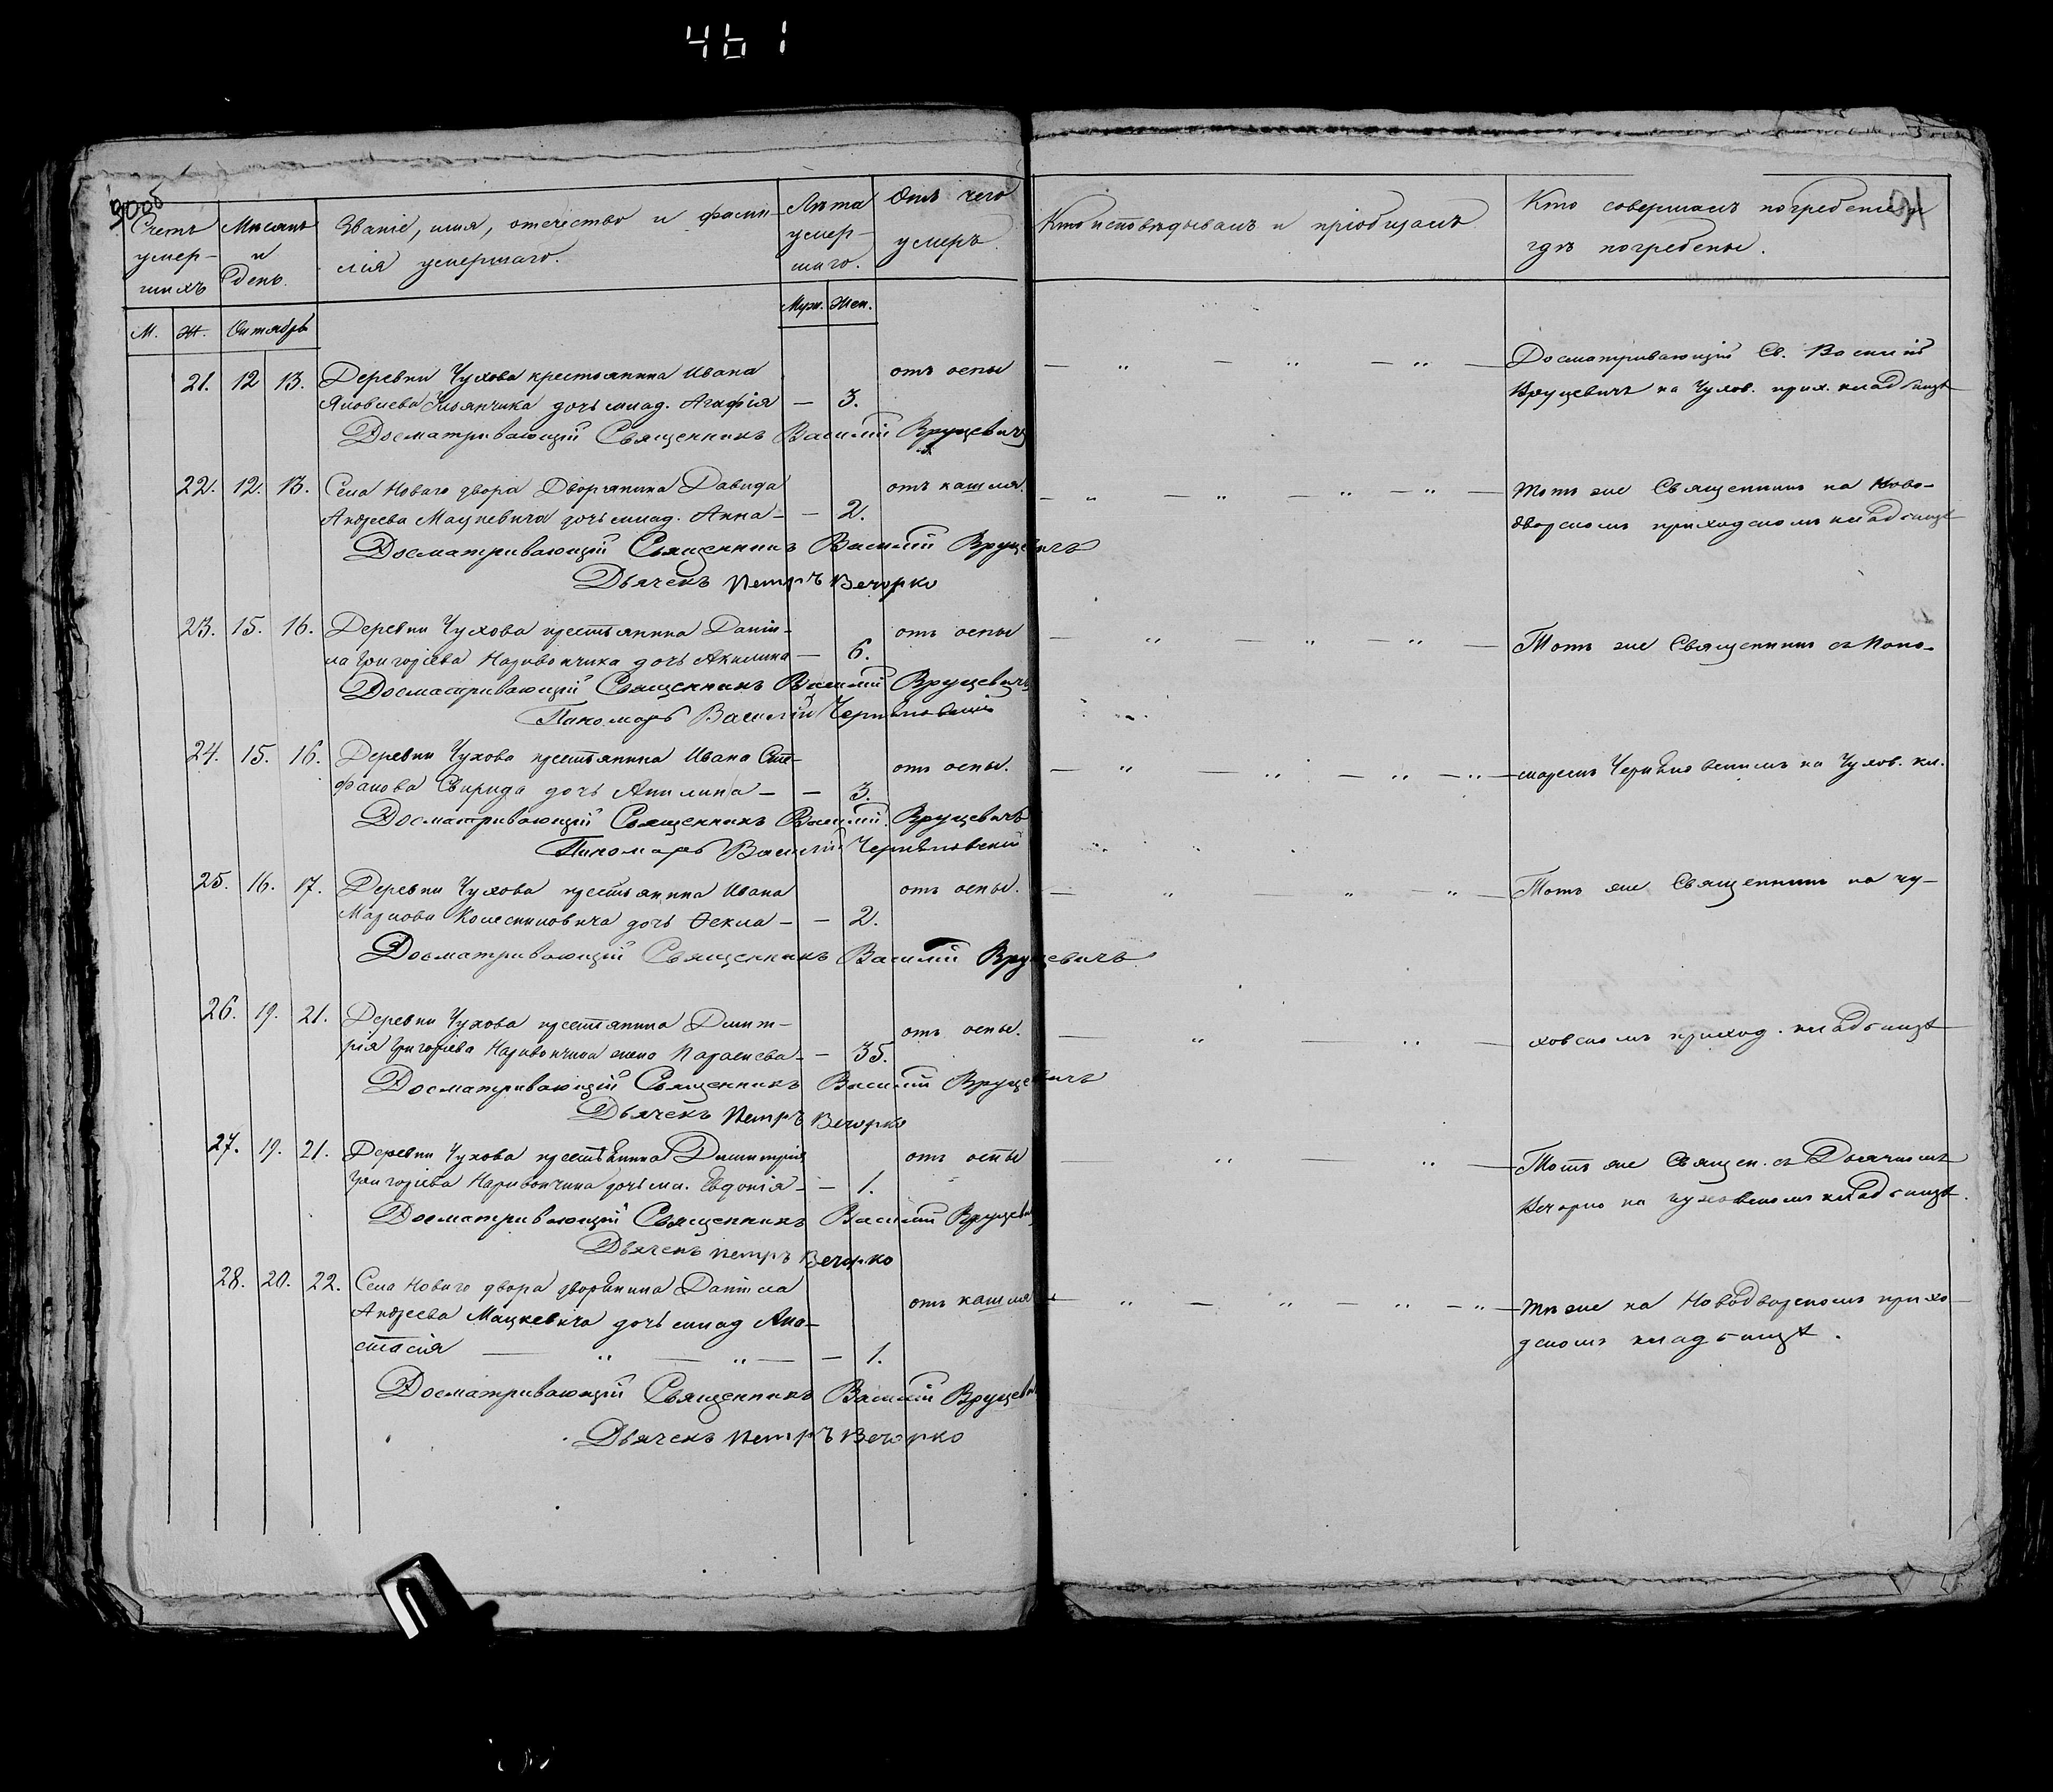 461
90об
91
Счетъ умер-шихъ
Мѣсяцъ и день.
Званіе, имя, отечество и фами-
лія умершаго.
Лѣта умер-шаго.
Отъ чего умеръ.
Кто исповѣдывалъ и пріобщалъ
Кто совершалъ погребеніе и
гдѣ погребены.
М. Ж. Октябрь
Муж. Жен.
21. 12 13. Деревни Чухова крестьянина Ивана отъ оспы
Яковлева дочь млад. Агафія — 3.
Досматривающій Священникъ Василій Вруцевичъ
Досматривающій Св. Василій
Вруцевичъ на Чухов. прих. кладбищѣ
22. 12. 13. Села Новаго двора Дворянина Давида отъ кашля.
Андреева Мацкевича дочь млад. Анна — 2.
Досматривающій Священникъ Василій Вруцевичъ
Дьячекъ Петръ Вечорко
Тотъ же Священникъ на Ново-
дворскомъ приходскомъ кладбищѣ
23. 15. 16. Деревни Чухова крестьянина Дани- отъ оспы
ла Григоріева Наривончика дочь Акилина — 6.
Досматривающій Священникъ Василій Вруцевичъ
Пономарь Василій Чернѣловскій
Тотъ же Священникъ съ Поно-
24. 15. 16. Деревни Чухова крестьянина Ивана Сте- отъ оспы.
фанова Свирида дочь Акилина — — 3.
Досматривающій Священникъ Василій Вруцевичъ
Пономарь Василій Чернѣловскій
маремъ на Чухов. кл.
25. 16. 17. Деревни Чухова крестьянина Ивана отъ оспы.
Маркова Колесниковича дочь Ѳекла — — 2.
Досматривающій Священникъ Василій Вруцевичъ
Тотъ же Священникъ на чу-
26. 19. 21. Деревни Чухова крестьянина Димит- отъ оспы.
рія Григоріева Наривончика жена Параскева — — 35.
Досматривающій Священникъ Василій Вруцевичъ
Дьячекъ Петръ Вечорко
ховскомъ приход. кладбищѣ
27. 19. 21. Деревни Чухова крестьянина Димитрія отъ оспы
Григоріева Наривончика дочь мл. Евдокія — — 1.
Досматривающій Священникъ Василій Вруцеви
Дьячекъ Петръ Вечорко
Тотъ же Священ. съ Дьячкомъ
Вечорко на чуховскомъ кладбищѣ.
28. 20. 22. Села Новаго двора дворянина Данила отъ кашля
Андреева Мацкевича дочь млад Ана-
стасія — „ — „ — — 1.
Досматривающій Священникъ Василій Вруцеви
Дьячекъ Петръ Вечорко
тѣ же на Новодворскомъ прихо-
дскомъ кладбищѣ.